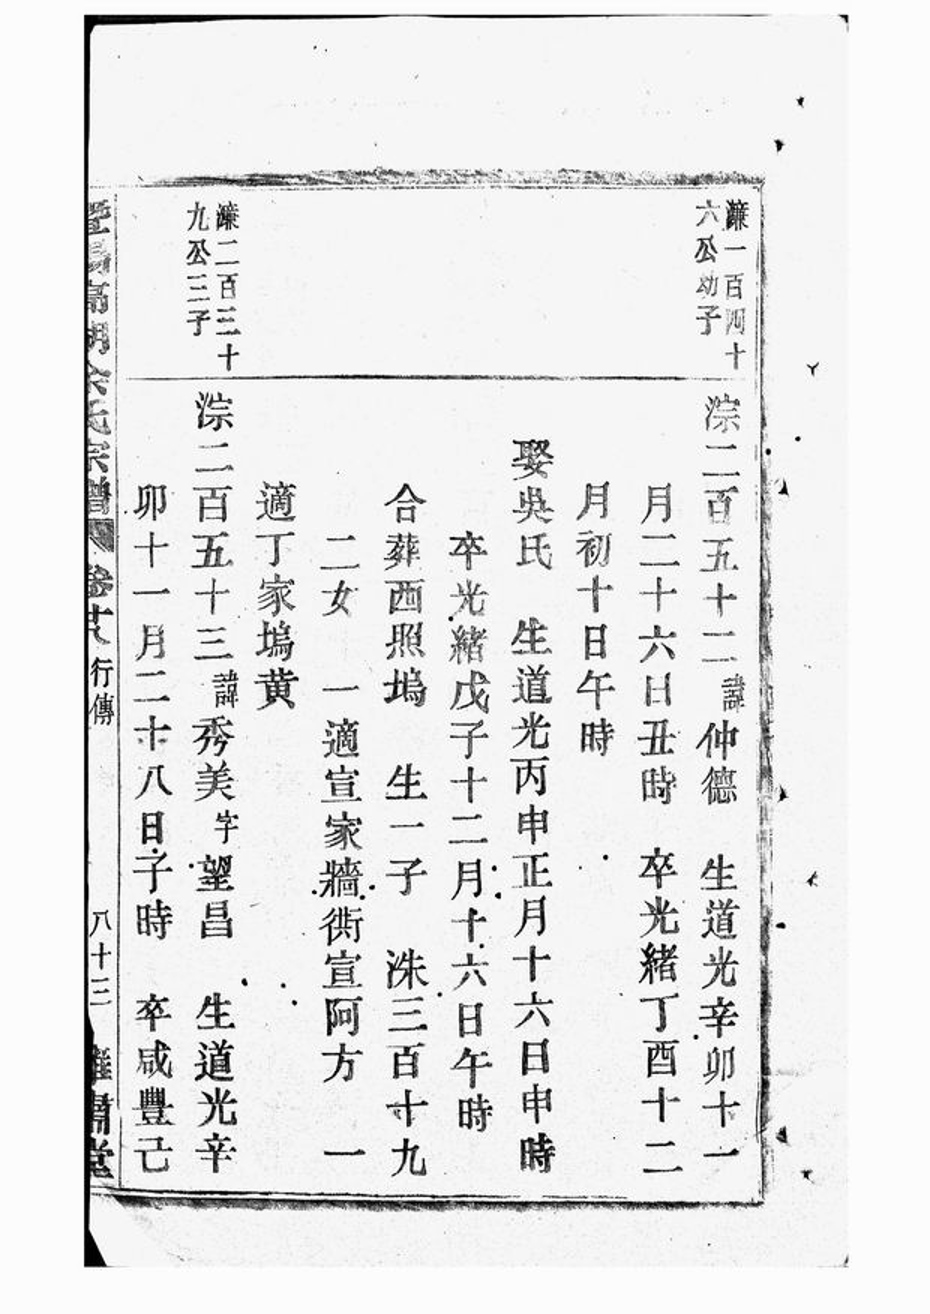 濂一百四十
六公幼子
淙二百五十二諱仲德 生道光辛卯十一
月二十六日丑時 卒光緒丁酉十二
月初十日午時
娶吳氏 生道光丙申正月十六日申時
卒光緒戊子十二月十六日午時
合葬西照塢 生一子 洙三百十九
二女 一適宣家牆衖宣阿方 一
適丁家塢黄
濂二百三十
九公三子
淙二百五十三諱秀美字望昌 生道光辛
卯十一月二十八日子時 卒咸豐己
暨陽高湖余氏宗譜 卷十八 行傳 八十三 肅堂